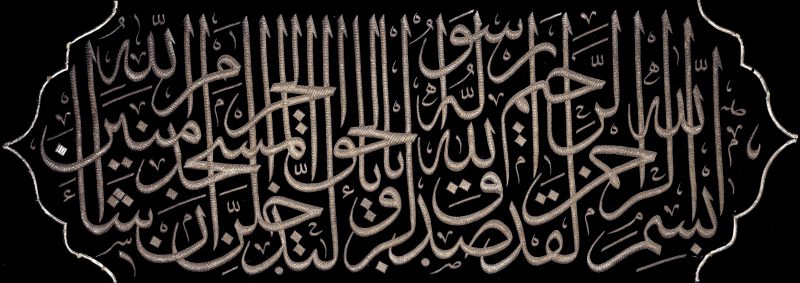 بسم الله الرحمن الرحيم لقد صدق الله رسوله الرؤيا بالحق لتدخلن المسجد الحرام إن شاء الله آمنين